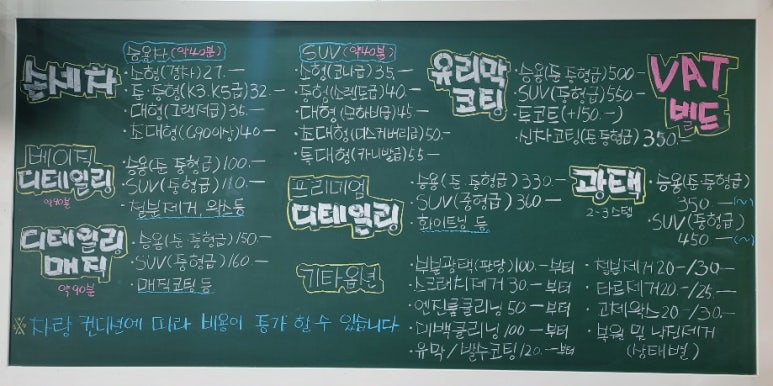 손세차
승용차 (약40분)
·소형(경차) 27.—
·준·중형(K3.K5급) 32.—
·대형(그랜저급) 35.—
·초대형(G90이상) 40—
SUV (약40분)
·소형(코나급) 35.—
·중형(쏘렌토급) 40.—
·대형(모하비급) 45—
·초대형(디스커버리급) 50—
·특대형(카니발급) 55—
유리막
코팅
·승용(준중형급) 500—
·SUV(중형급) 550—
·투코트(+150.—)
·신차코팅(준중형급) 350.—
VAT
별도
베이직
디테일링
약90분
·승용(준중형급) 100.—
·SUV(중형급) 110.—
·철분제거, 왁스등
프리미엄
디테일링
·승용(준중형급) 330.—
·SUV(중형급) 360—
·화이트닝 등
광택
2-3스텝
·승용(준중형급)
350—(~)
·SUV(중형급)
450—(~)
디테일링
매직
약90분
·승용(준중형급) 150.—
·SUV(중형급) 160.—
·매직코팅 등
기타옵션
·부분광택(판당) 100.—부터
·스크래치제거 30.—부터
·엔진룸클리닝 50—부터
·가죽클리닝 100—부터
·유막/발수코팅 120.—부터
·철분제거 20-/30.—
·타르제거 20.-/25.—
·고체왁스 20-/30.—
·복원 및 낙진제거
(상태별)
※ 차량 컨디션에 따라 비용이 증가 할 수 있습니다